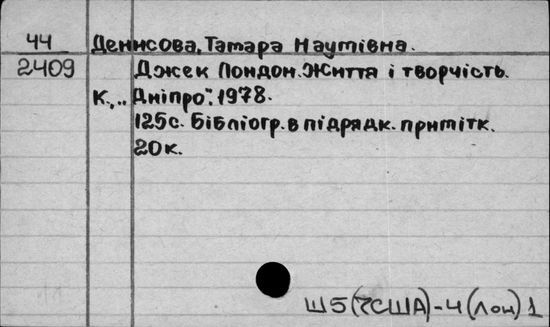 44
Денисова, Тамара Наумівна.
2409
Джек Лондон. Життя і творчість.
К., „Дніпро", 1978.
125с. Бібліогр. в підрядк. примітк.
20к.
Ш5(7США)-4(Лон)1